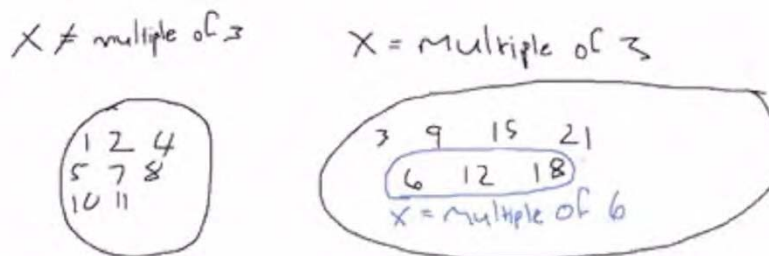 X ≠ multiple of 3
X = multiple of 3
1 2 4
5 7 8
10 11
3 9 15 21
6 12 18
x = multiple of 6